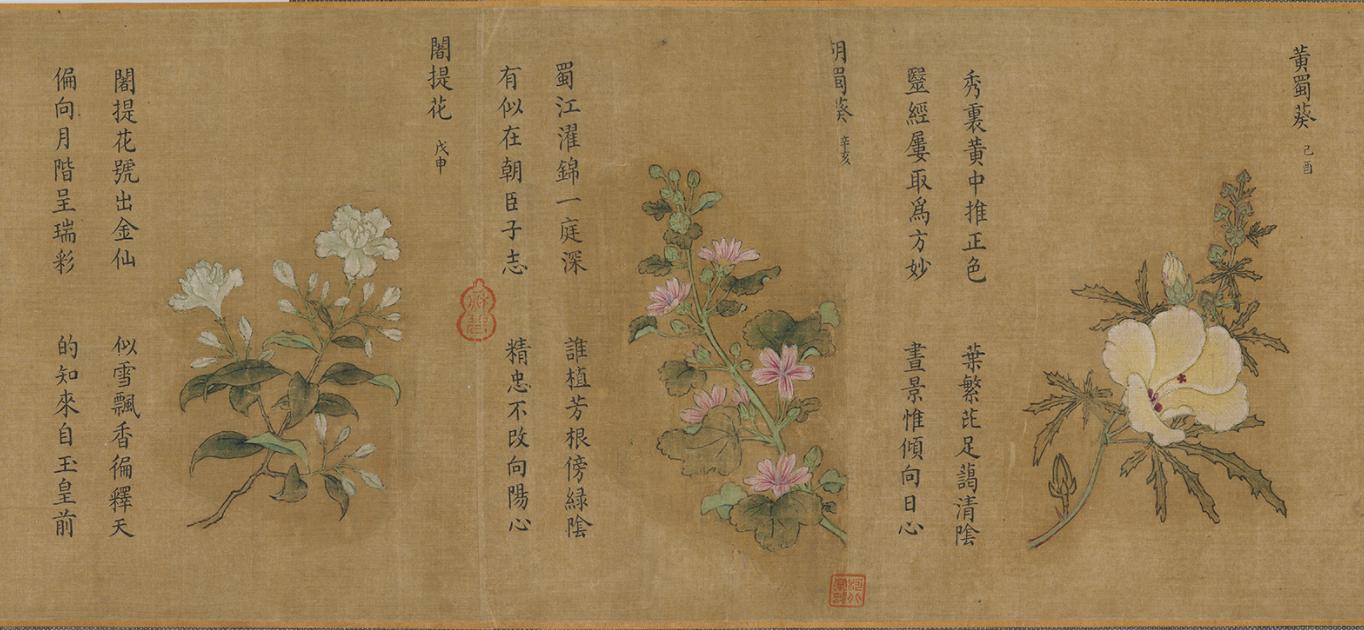 黃蜀葵 己酉
秀裏黃中推正色 葉繁芘足藹清陰
毉經屢取爲方妙 晝景惟傾向日心
胡蜀葵 辛亥
蜀江濯錦一庭深 誰植芳根傍緑陰
有似在朝臣子志 精忠不改向陽心
闍提花 戊申
闍提花號出金仙 似雪飄香徧釋天
偏向月階呈瑞彩 的知來自玉皇前